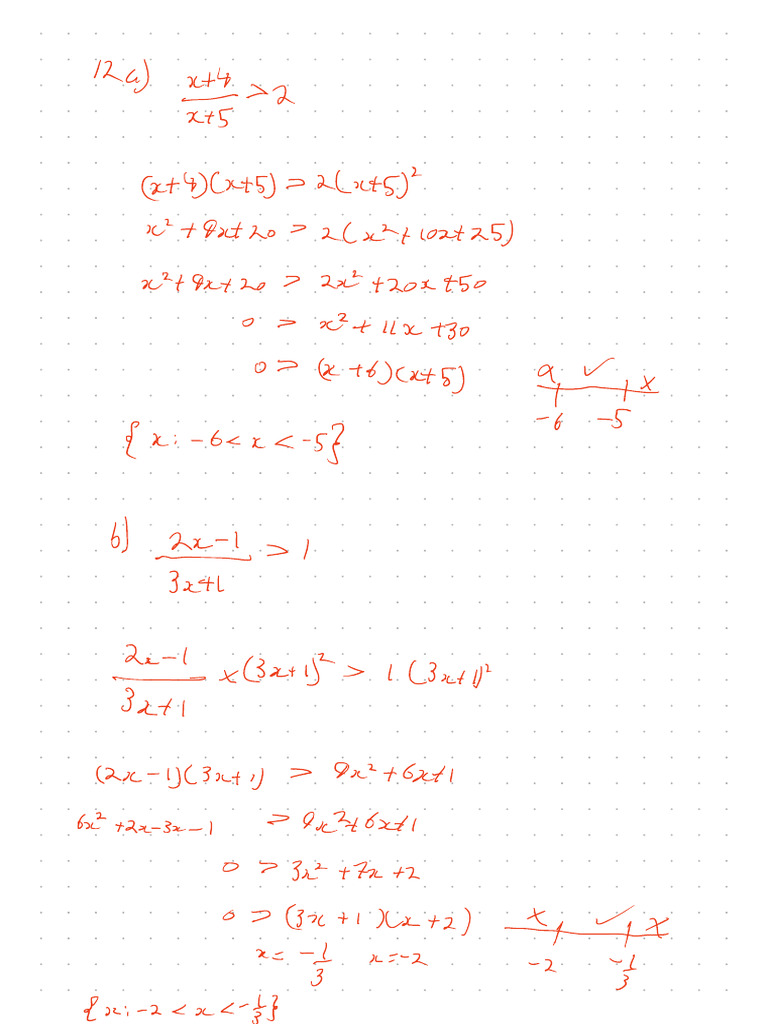 12a) x+4/x+5 > 2
(x+4)(x+5) > 2(x+5)²
x² + 9x+20 > 2(x²+10x+25)
x²+9x+20 > 2x²+20x+50
0 > x²+11x+30
0 > (x+6)(x+5)
x ✓ x
-6 -5
{x: -6 < x < -5}
b) 2x-1/3x+1 > 1
2x-1/3x+1 × (3x+1)² > 1(3x+1)²
(2x-1)(3x+1) > 9x²+6x+1
6x²+2x-3x-1 > 9x²+6x+1
0 > 3x²+7x+2
0 > (3x+1)(x+2)
x ✓ x
x = -1/3 x=-2
-2 -1/3
{x: -2 < x < -1/3}